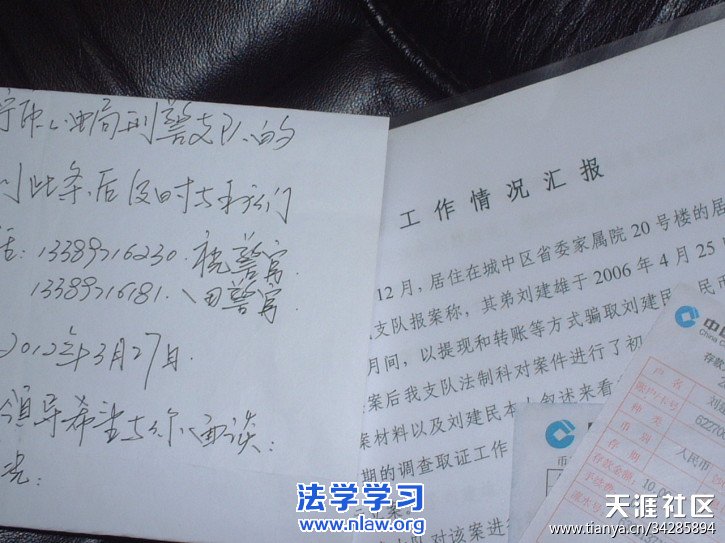 宁市公安局刑警支队的
到此条后及时与我们
话: 13389716230. 祝警官
13389716181. 田警官
2012年3月27日.
领导希望与你面谈:
况:
工作情况汇报
12月,居住在城中区省委家属院20号楼的居
支队报案称,其弟刘建雄于2006年4月25
月间,以提现和转账等方式骗取刘建民 民币
案后我支队法制科对案件进行了初
案材料以及刘建民本人叙述来看
期的调查取证工作
立案。
队对该案进行
中国
China C
存款
户名
刘
账户/卡号
6227
种类
币别
人民币
存期
存款金额:10,00
手续费
流水号
币
法学学习
www.nlaw.org
天涯社区
www.tianya.cn/34285894